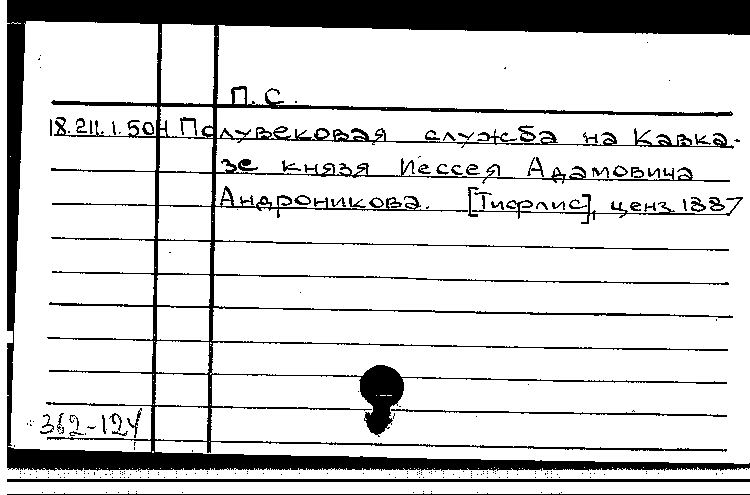 П. С.
18.211.1.504 Полувековая служба на Кавка-
зе князя Иессея Адамовича
Андроникова. [Тифлис], ценз. 1887
362-124